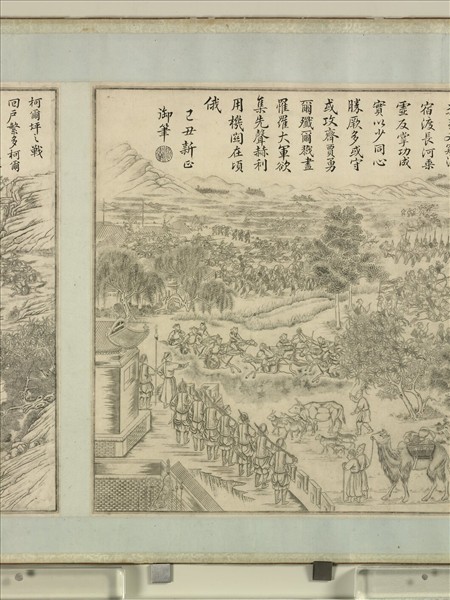 宿渡長河乘
靈反掌功成
實以少同心
勝厥多或守
或攻齊賈勇
爾殲爾戮
大軍欲
集先聲赫利
用機関在頃
俄
己丑新正
御筆
柯爾坪之戰
回戶繁多柯爾